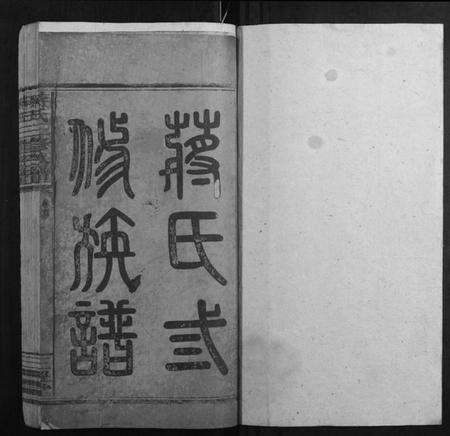 蔣氏弍
修族譜